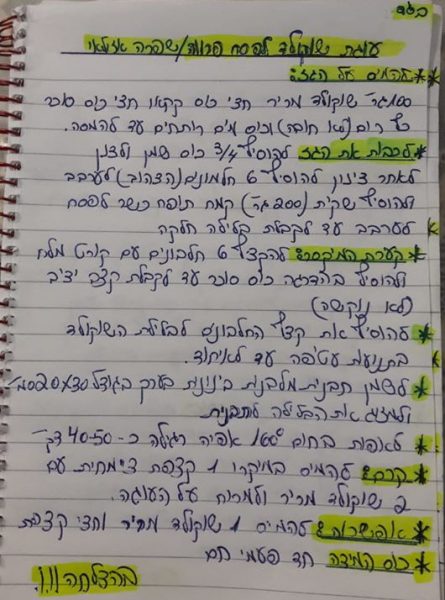 בס"ד
עוגת שוקולד לפסח פרווה/שפרה אזולאי
* להמיס על הגז:
100 גר' שוקולד מריר חצי כוס קקאו חצי כוס סוכר
כף רום (לא חובה) וכוס מים רותחים עד להמסה.
* לכבות את הגז להוסיף 3/4 כוס שמן ולצנן
לאחר צינון להוסיף 6 חלמונים (הצהוב) לערבב
ולהוסיף שקית (200 גר') קמח תופח כשר לפסח
לערבב עד לקבלת בלילה חלקה
* קערת המיקסר: להקציף 6 חלבונים עם קורט מלח
ולהוסיף בהדרגה כוס סוכר עד לקבלת קצף יציב
(לא נוקשה)
* להוסיף את קצף החלבונים לבלילת השוקולד
בתנועות עטיפה עד לאיחוד.
* לשמן תבנית מלבנית בינונית בערך בגודל 20X30 סמ'
ולמזוג את הבלילה לתבנית
* לאפות בחום 160° אפיה רגילה כ-40-50 דק'
* קרם: להמיס במיקרו 1 קצפת צימחית עם
2 שוקולד מריר ולמרוח על העוגה.
* אפשרות: להמיס 1 שוקולד מריר וחצי קצפת
* כוס המידה חד פעמי חם
בהצלחה !!!